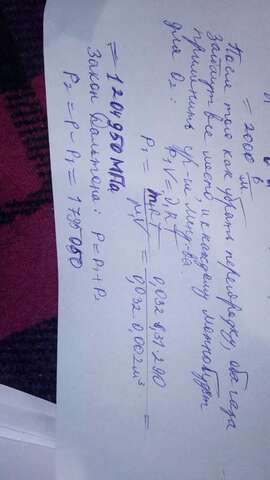 = 2000 м
После того как убрать перегородку, оба газа
займут все место, и к каждому можно будет
применить ур-ие
для O₂: P₁V = νRT
P₁ = mRT/μV = 0,032 · 8,31 · 290 / 0,032 · 0,002 м³ =
= 1204950 МПа
Закон Дальтона: P = P₁ + P₂
P₂ = P - P₁ = 1795050